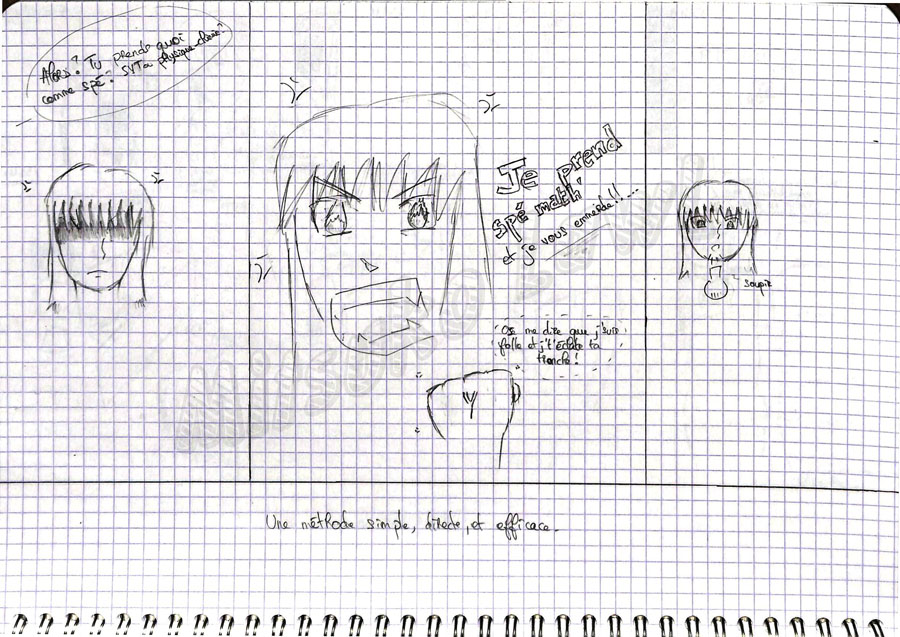 Alors? Tu prends quoi
comme spé? SVT ou physique-chimie?
Je prend
spé math,
et je vous emmerde!!...
soupir
Ose me dire que j'suis
folle et j't'éclate ta
tronche!
Une méthode simple, directe, et efficace.